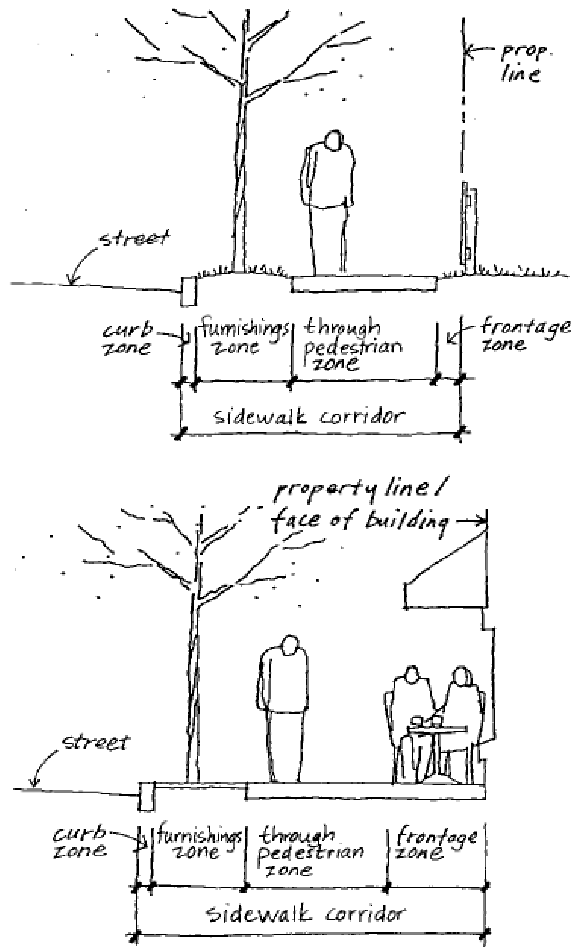 prop.
line
street
curb
zone
furnishings
zone
through
pedestrian
zone
frontage
zone
sidewalk corridor
property line/
face of building
street
curb
zone
furnishings
zone
through
pedestrian
zone
frontage
zone
sidewalk corridor